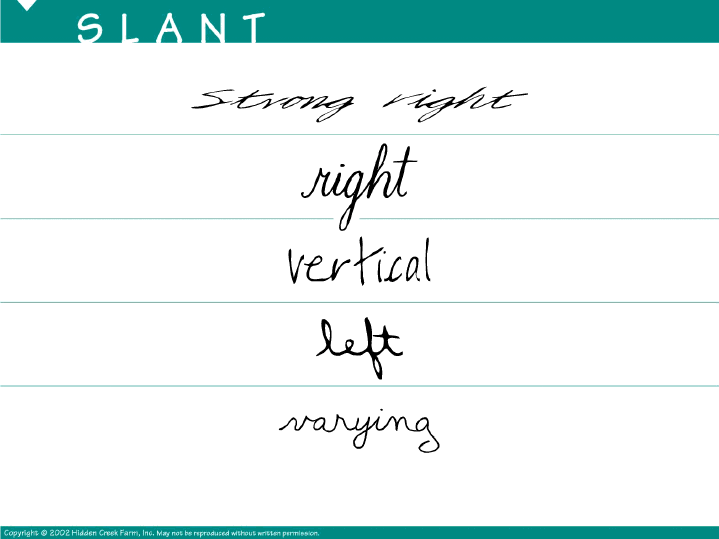 SLANT
Strong right
right
vertical
left
varying
Copyright © 2002 Hidden Creek Farm, Inc. May not be reproduced without written permission.